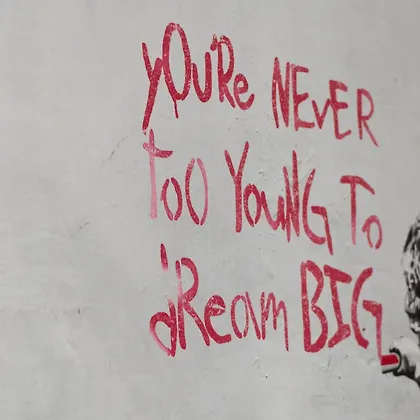 yOU'Re NEVER
too YouNG To
dReam BIG